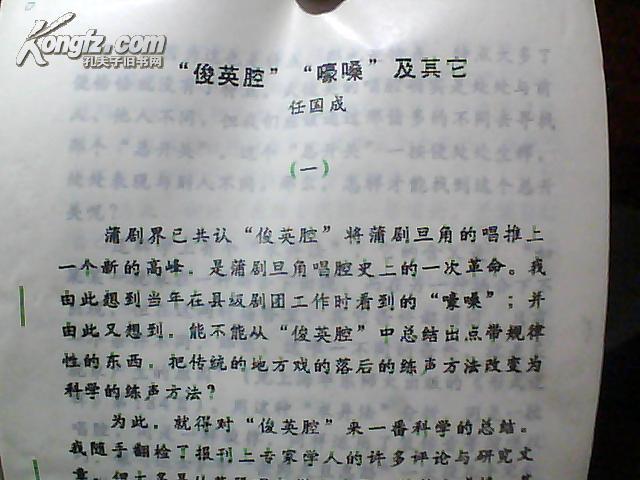 Kongfz.com
孔夫子旧书网
“俊英腔”“嚎嗓”及其它
任国成
（一）
蒲剧界已共认“俊英腔”将蒲剧旦角的唱推上
一个新的高峰。是蒲剧旦角唱腔史上的一次革命。我
由此想到当年在县级剧团工作时看到的“嚎嗓”；并
由此又想到。能不能从“俊英腔”中总结出点带规律
性的东西。把传统的地方戏的落后的练声方法改变为
科学的练声方法？
为此。就得对“俊英腔”来一番科学的总结。
我随手翻检了报刊上专家学人的许多评论与研究文